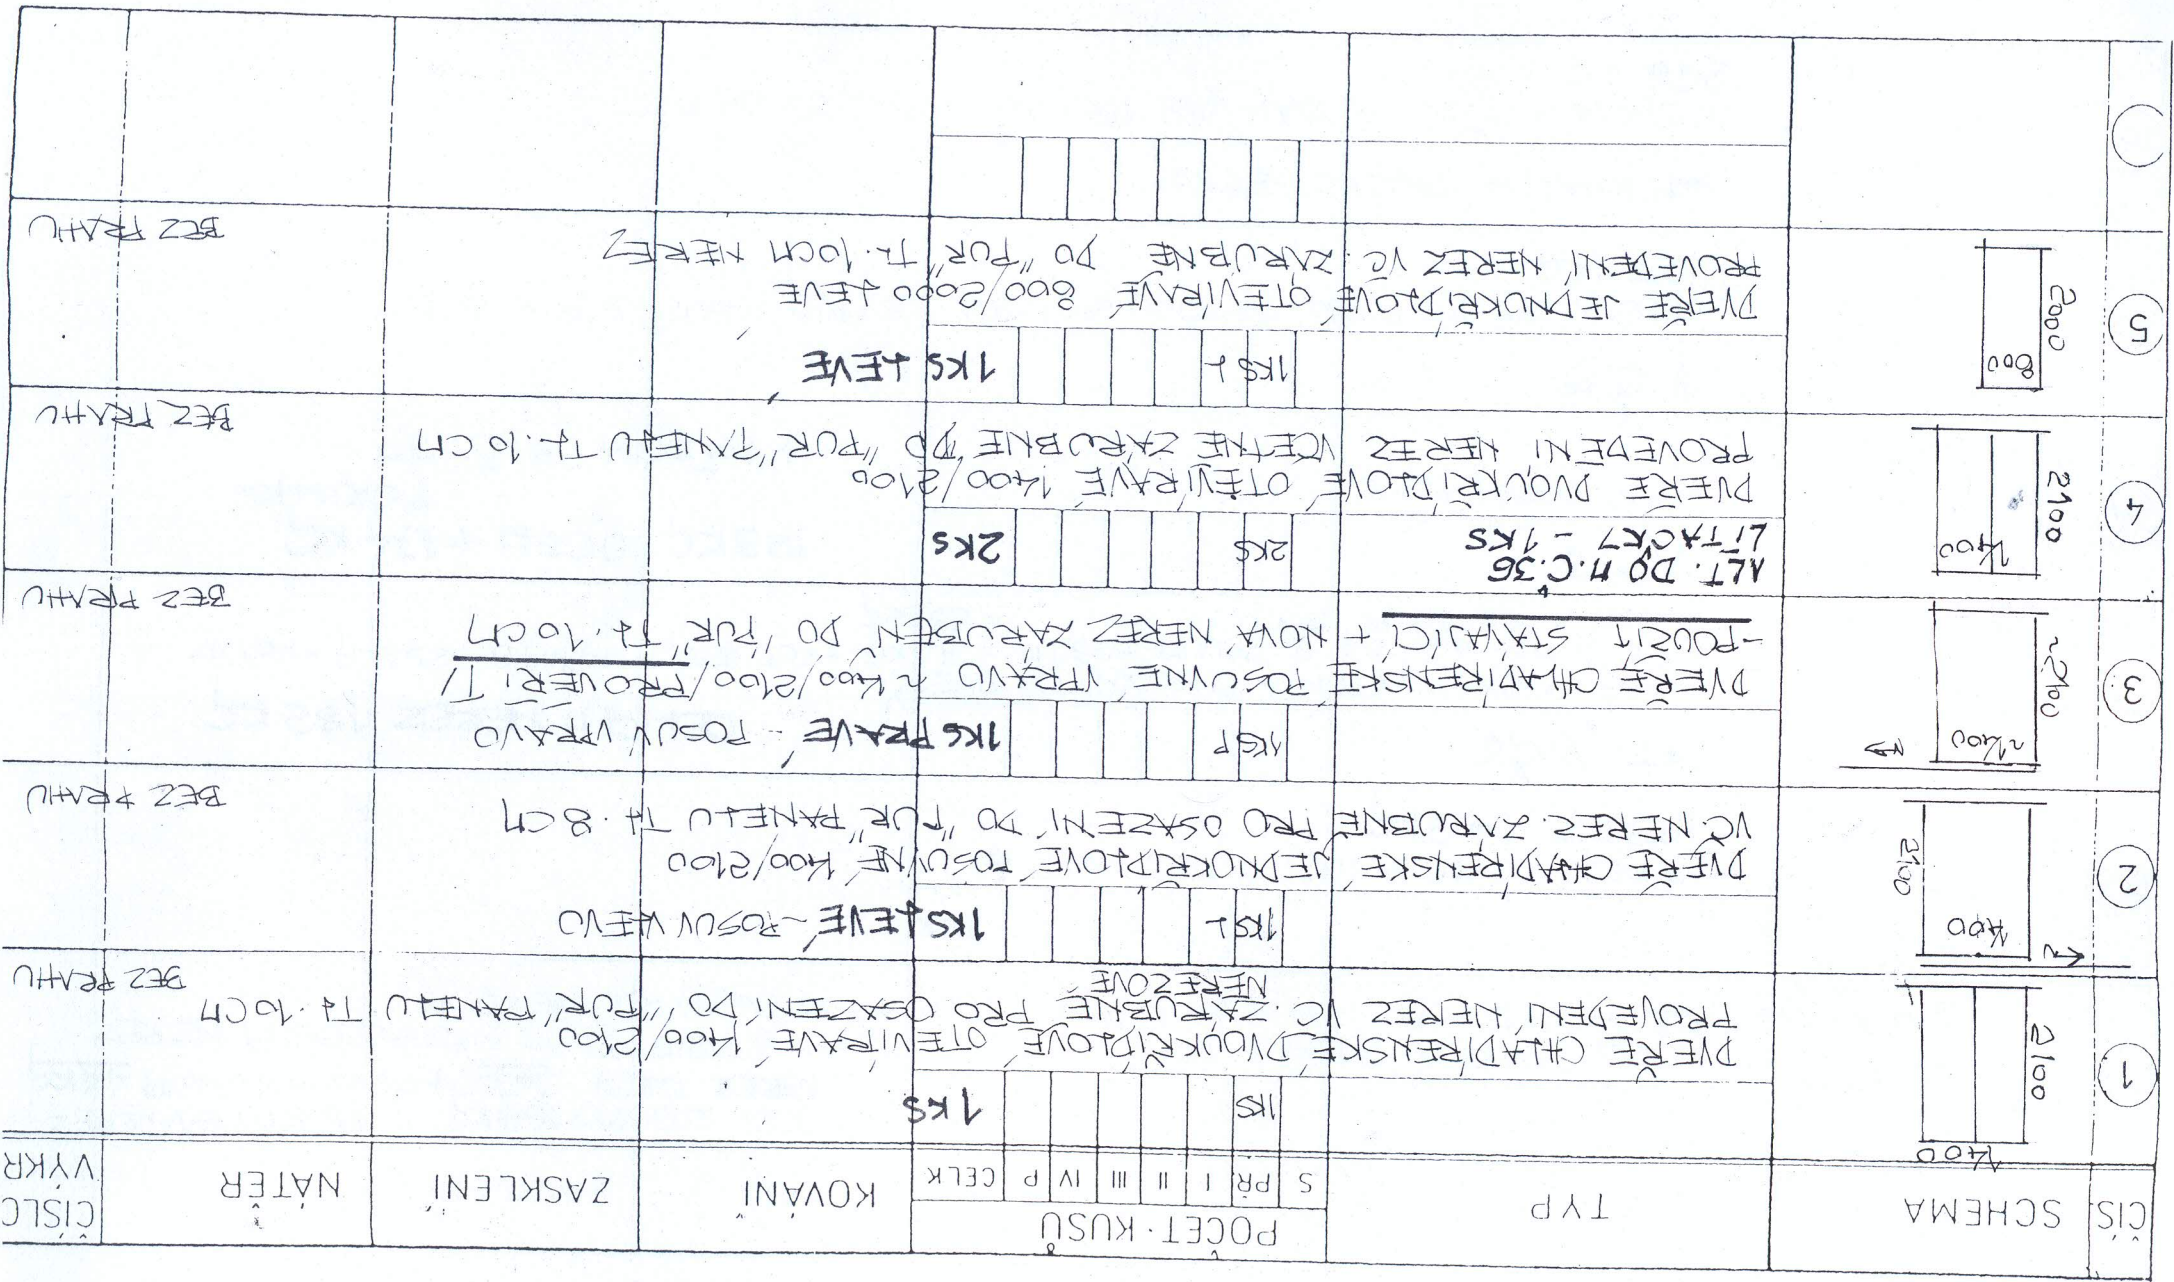 ČÍS.
SCHEMA
TYP
POČET·KUSŮ
S PŘ I II III IV P CELK
KOVÁNÍ
ZASKLENÍ
NÁTĚR
ČÍSLO
VÝKR
1
1400
2100
1KS
1KS
DVEŘE CHLADÍRENSKÉ, DVOUKŘÍDLOVÉ, OTEVÍRAVÉ, 1400/2100
PROVEDENÍ NEREZ VČ. ZÁRUBNĚ PRO OSAZENÍ DO "PUR" PANELU TL. 10CM
NEREZOVÉ
BEZ PRAHU
2
1400
2100
1KS L
1KS LEVÉ, - POSUV VLEVO
DVEŘE CHLADÍRENSKÉ, JEDNOKŘÍDLOVÉ, POSUVNÉ, 1400/2100
VČ. NEREZ. ZÁRUBNĚ PRO OSAZENÍ DO "PUR" PANELU TL. 8CM
BEZ PRAHU
3
~1400
~2100
1KS P
1KS PRAVÉ, - POSUV VPRAVO
DVEŘE CHLADÍRENSKÉ POSUVNÉ, VPRAVO ~1400/2100/PROVĚŘIT!/
-POUŽÍT STÁVAJÍCÍ, + NOVÁ NEREZ ZÁRUBEŇ DO "PUR" TL. 10CM
BEZ PRAHU
4
1400
2100
ALT. DO M.Č.36
LÍTAČKY - 1KS
2KS
2KS
DVEŘE DVOUKŘÍDLOVÉ, OTEVÍRAVÉ, 1400/2100
PROVEDENÍ NEREZ VČETNĚ ZÁRUBNĚ DO "PUR" PANELU TL. 10CM
BEZ PRAHU
5
800
2000
1KS L
1KS LEVÉ
DVEŘE JEDNUKŘÍDLOVÉ, OTEVÍRAVÉ, 800/2000 LEVÉ
PROVEDENÍ, NEREZ VČ. ZÁRUBNĚ DO "PUR" TL. 10CM NEREZ
BEZ PRAHU